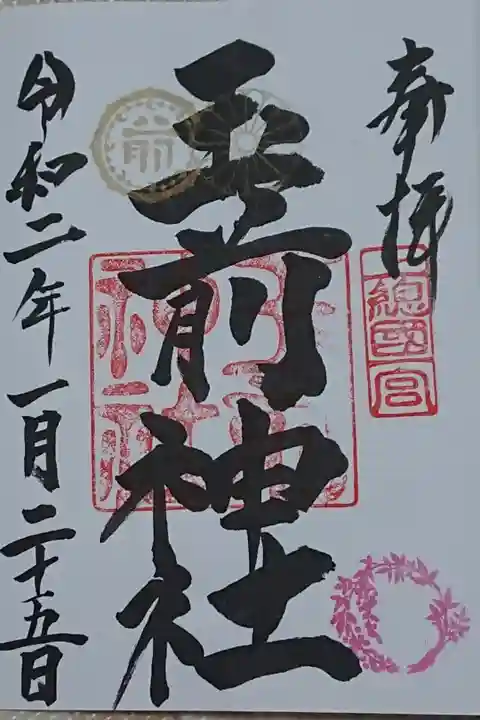 奉拝
總國宮
玉前神社
前
令和二年一月二十五日